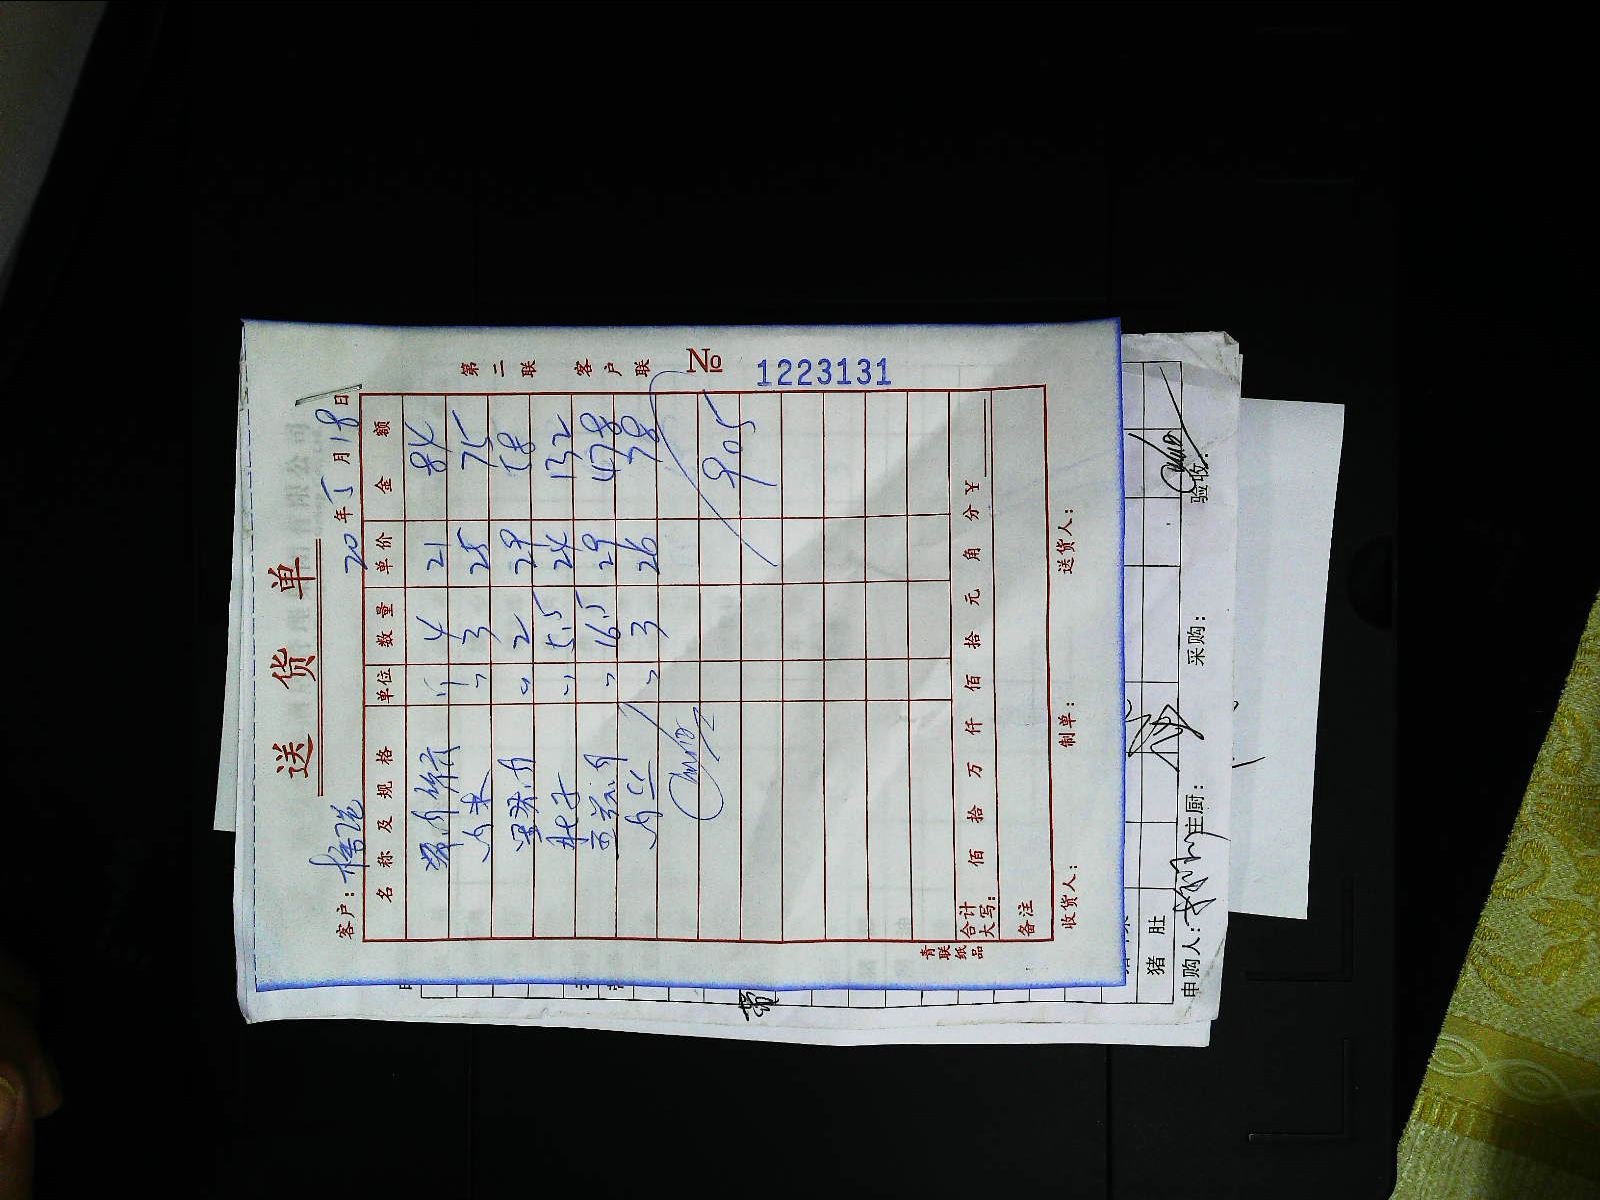 送 货 单
第二联 客户联
№ 1223131
客户：
20 年 5 月 18 日
名称及规格 单位 数量 单价 金额
斤 4 21 84
肉末 〃 3 25 75
〃 2 29 58
肚子 〃 5.5 24 132
五花肉 〃 16.5 29 478
肉丝 〃 3 26 78
905
合计大写： 佰 拾 万 仟 佰 拾 元 角 分 ￥
备注
收货人： 制单： 送货人：
青联纸品
猪肚
申购人： 庄厨： 采购： 验收：